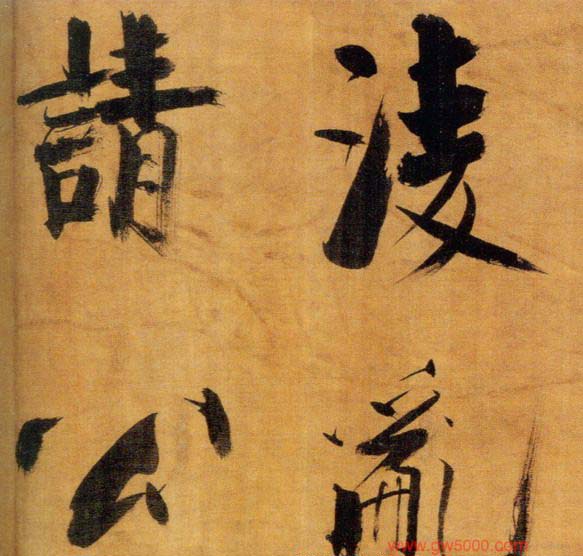 淩亂
請公
www.gw5000.com